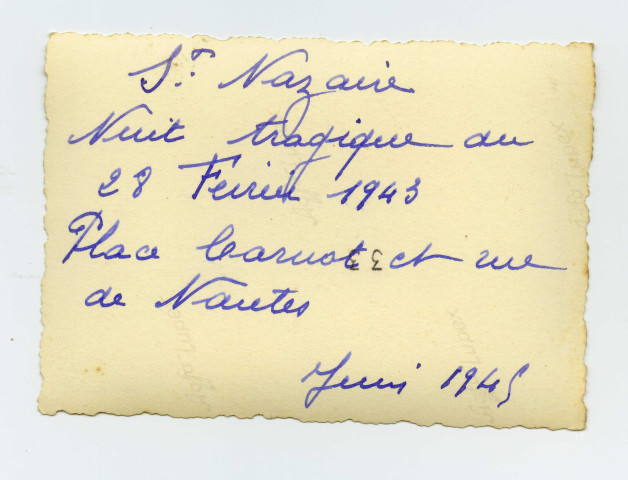 St Nazaire
Nuit tragique du
28 Fevrier 1943
Place Carnot et rue
de Nantes
Juin 1945
33